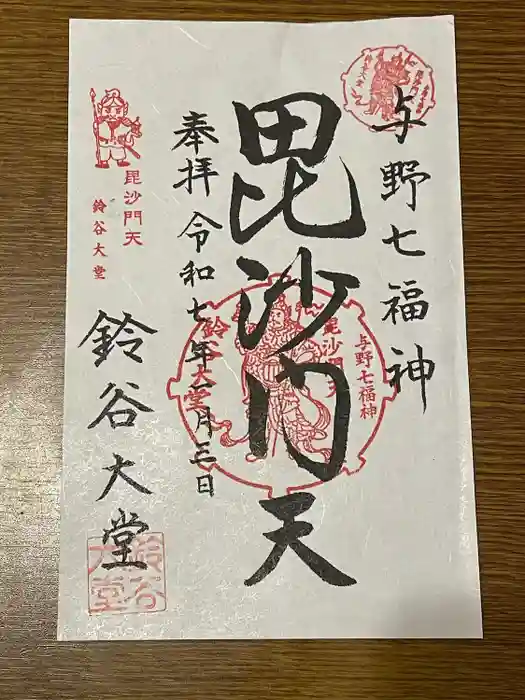 与野七福神
毘沙門天
奉拝 令和七年一月三日
鈴谷大堂
毘沙門天
鈴谷大堂
与野七福神
毘沙門天
鈴谷大堂
鈴谷大堂